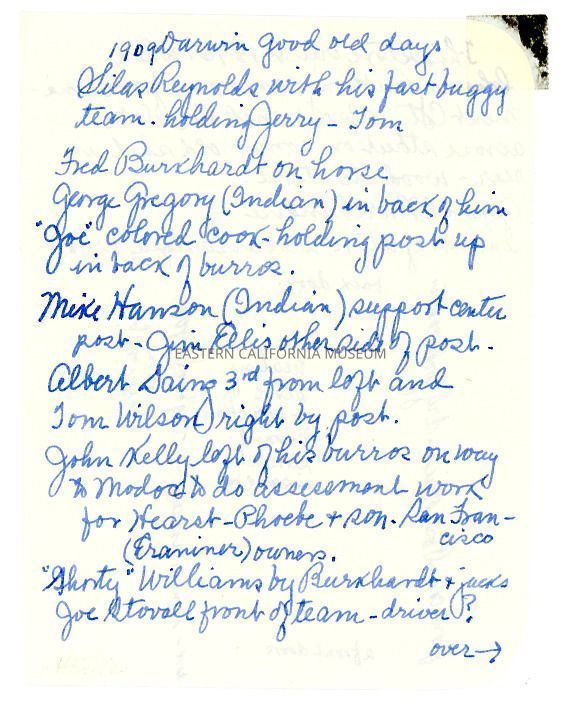 1909 Darwin good old days
Silas Reynolds with his fast buggy
team. holding Jerry - Tom
Fred Burkhardt on horse
George Gregory (Indian) in back of him
"Joe" colored cook - holding post up
in back of burros.
Mike Hanson (Indian) support center
post - Jim Ellis other side of post.
EASTERN CALIFORNIA MUSEUM
Albert 3rd from left and
Tom Wilson) right by post.
John Kelly left of his burros on way
to Modoc to do assessment work
for Hearst - Phoebe + son. San Fran-
cisco
(Examiner) owners.
"Shorty" Williams by Burkhardt + jacks
Joe Stovall front of team - driver?
over →